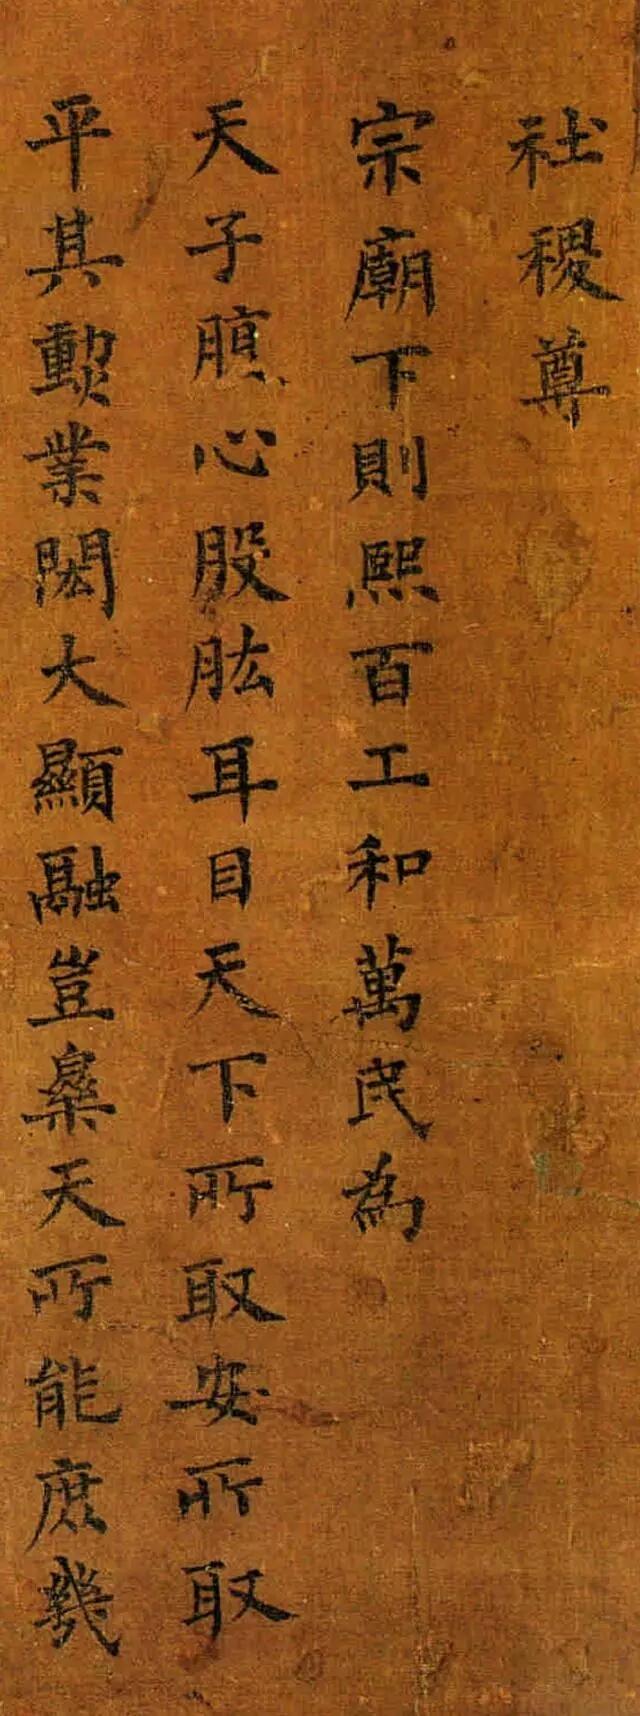 社稷尊
宗廟下則熙百工和萬民為
天子腹心股肱耳目天下所取安所取
平其勲業閎大顯融豈臯夭所能庶幾